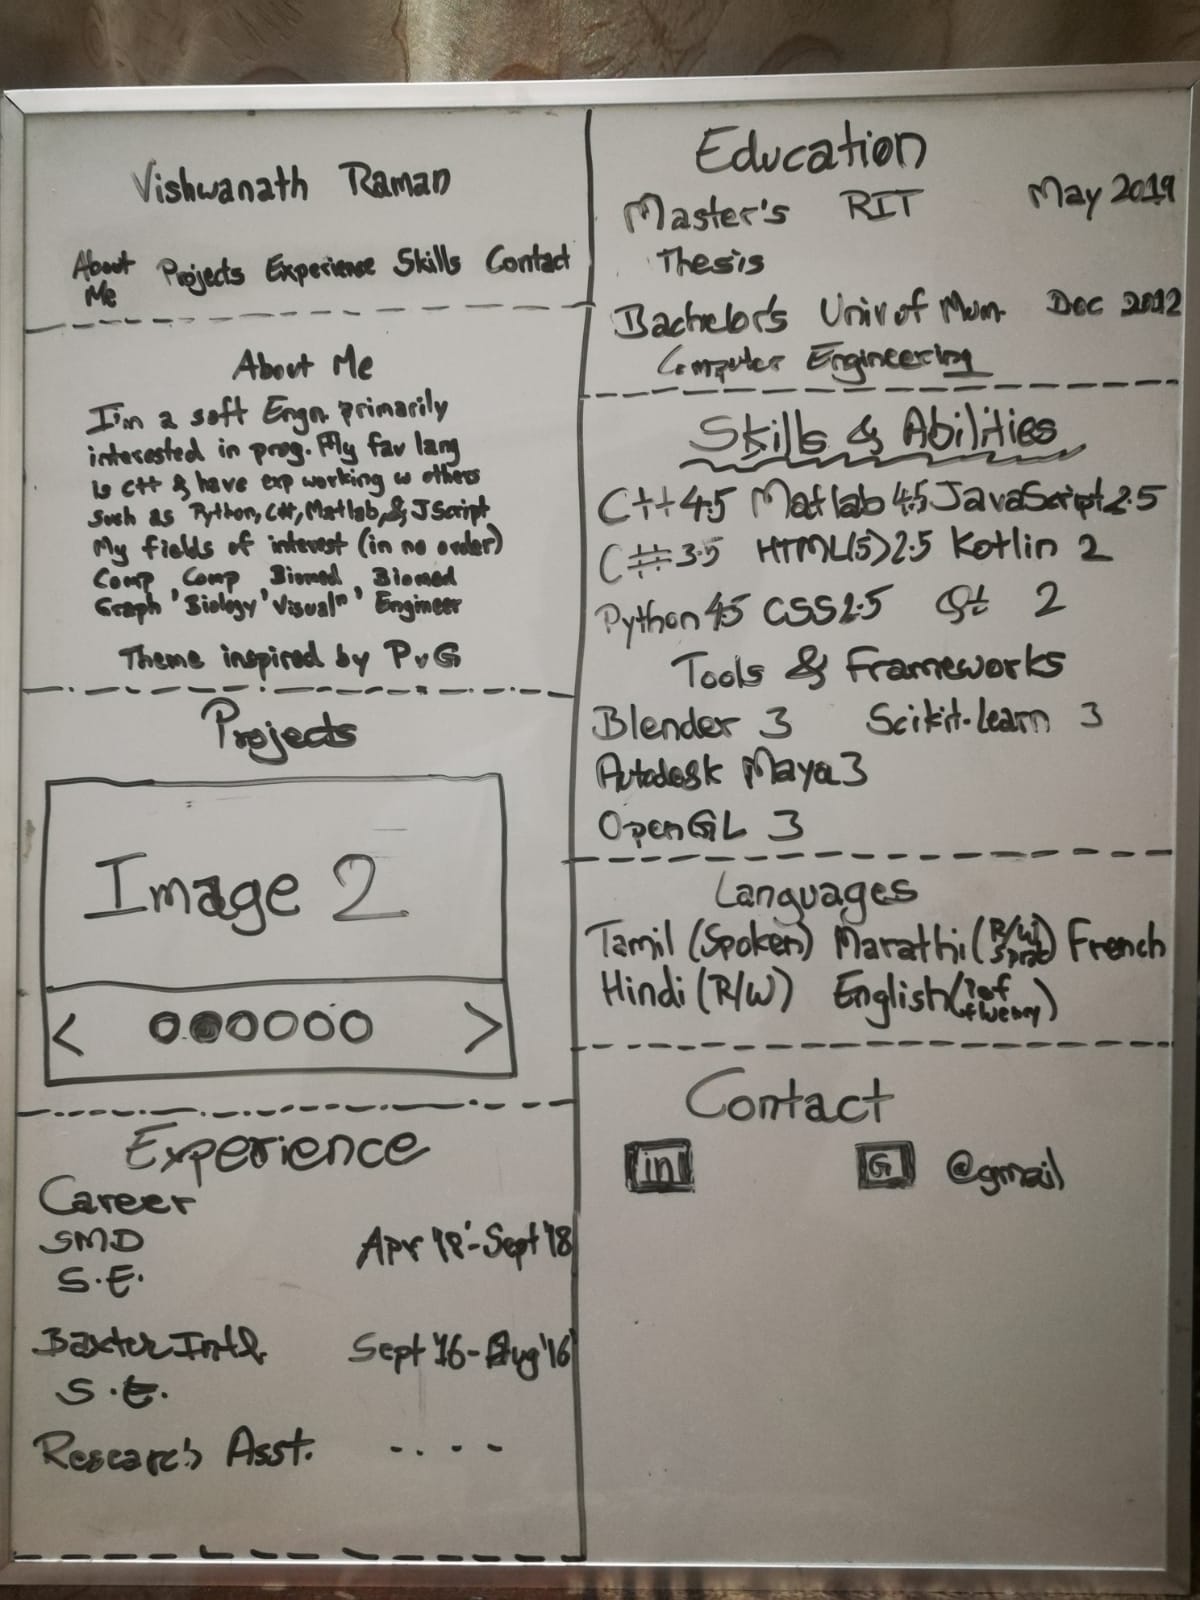 Vishwanath Raman
About Me Projects Experience Skills Contact
About Me
I'm a soft Engn. primarily
interested in prog. My fav lang
is C++ & have exp working w others
such as Python, C#, Matlab, & JScript
My fields of interest (in no order)
Comp Graph, Comp Biology, Biomed Visualⁿ, Biomed Engineer
Theme inspired by PvG
Projects
Image 2
< >
Experience
Career
SMD Apr '18 - Sept '18
S.E.
Baxter Intl. Sept '16 - Aug '16
S.E.
Research Asst. ....
Education
Master's RIT May 2019
Thesis
Bachelor's Univ of Mum. Dec 2012
Computer Engineering
Skills & Abilities
C++ 4.5 Matlab 4.5 JavaScript 2.5
C# 3.5 HTML(5) 2.5 Kotlin 2
Python 4.5 CSS 2.5 Qt 2
Tools & Frameworks
Blender 3 Scikit-Learn 3
Autodesk Maya 3
OpenGL 3
Languages
Tamil (Spoken) Marathi (R/W) French
Hindi (R/W) English (fluency)
Contact
in G @gmail